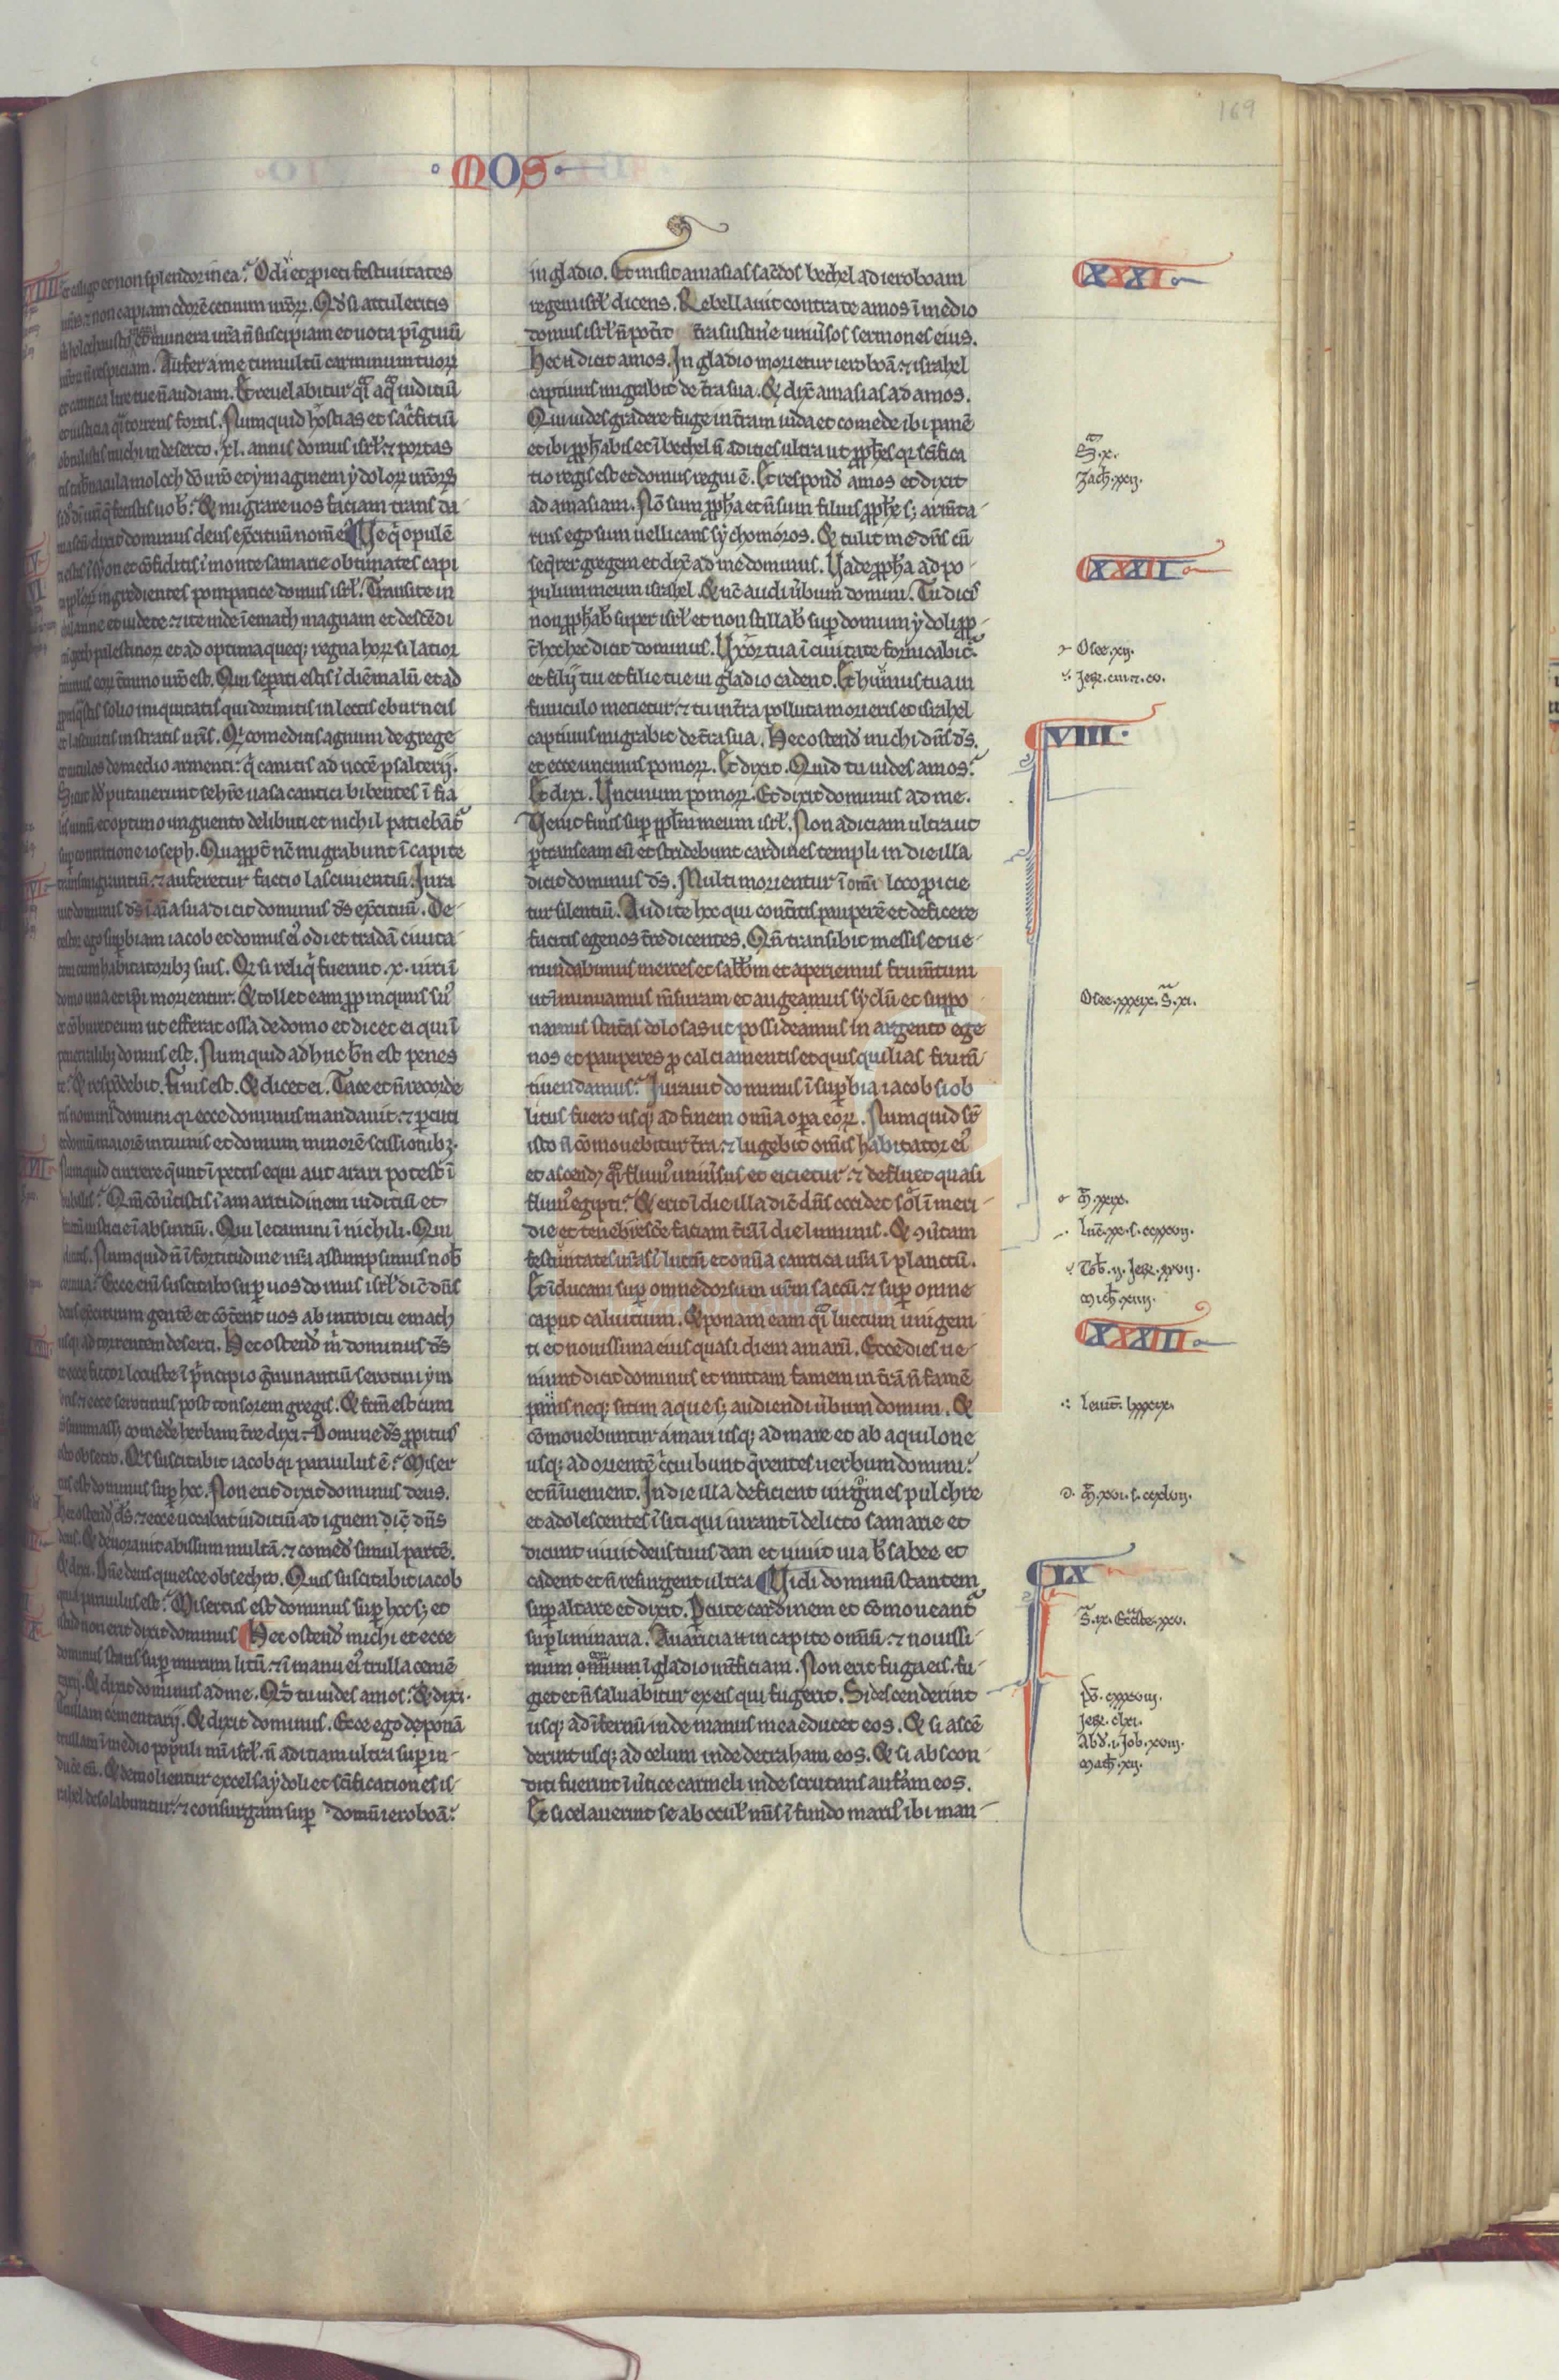 169
MOS
et caligo et non splendor in ea. Odi et ꝓieci festiuitates
ur̃as ⁊ non capiam odorẽ cetuum ur̃orꝝ. Qd̃ si attuleritis
m̃ holochausta et munera ur̃a ñ suscipiam et uota pĩguiũ
ur̃orꝝ ñ respiciam. Aufer a me tumultũ carminum tuorꝝ
et cantica lire tue ñ audiam. Et reuelabitur q̃i aq̃ iuditiũ
et iusticia q̃i torrens fortis. Numquid hostias et sac̃fitiũ
obtulistis michi in deserto .xl. annis domus isrl̃. ⁊ portas
tis tab̃nacula moloch dõ ur̃o et ymaginem ydolorꝝ ur̃orꝝ
sid̃ dĩ ur̃i q̃ fecistis uob̃. & migrare uos faciam trans da
mascũ dixit dominus deus exc̃ituũ nom̃e Ue q̃ opulẽ
ti estis ĩ syon et cõfiditis ĩ monte samarie obtimates capi
ta pp̃lorꝝ ingredientes pompatice domus isrl̃. Transite in
chalanne et uidete. ⁊ ite inde ĩ emath magnam et descẽdi
te ĩ geth palestinorꝝ et ad optima queqꝫ regna horꝝ si latior
t̃minus eorꝝ t̃mino ur̃o est. Qui sep̃ati estis ĩ diẽ malũ et ad
ꝓpiq̃tis solio iniquitatis qui dormitis in lectis eburneis
et lasciuitis in stratis ur̃is. Qi comeditis agnum de grege
et uitulos de medio armenti. q̃ canitis ad uocẽ psalterij.
Sicut dd̃ putauerunt se hr̃e uasa cantici bibentes ĩ fia
lis uinũ et optimo unguento delibuti et nichil patiebãt̃
sup̃ contritione ioseph. Quap̃pt̃ nc̃ migrabunt ĩ capite
transmigrantiũ. ⁊ auferetur factio lasciuientiũ. Iura
uit dominus ds̃ ĩ aĩa sua dicit dominus ds̃ exc̃ituũ. De
testor ego sup̃biam iacob et domus ei᷒ odi et tradã ciuita
tem cum habitatoribꝫ suis. Qi si reliq̃ fuerint .x. uiri ĩ
domo una et ip̃i morientur. & tollet eam ꝓpinquus su᷒
et cõburet eum ut efferat ossa de domo et dicet ei qui ĩ
penetralibꝫ domus est. Numquid adhuc b̃n est penes
te. & respõdebit. Finis est. & dicet ei. Tace et ñ recorde
ris nominis domini qi ecce dominus mandauit. ⁊ ꝑcuti
et domũ maiorẽ in ruinis et domum minorẽ scissionibꝫ.
Numquid currere q̃unt ĩ petris equi aut arari potest ĩ
bubalis. Qm̃ cõũtistis ĩ amaritudinem iuditiũ et
fructũ iusticie ĩ absintiũ. Qui letamini ĩ nichili. Qui
dicitis. Numquid ñ ĩ fortitudine nr̃a assumpsimus nob̃
cornua. Ecce eni suscitabo sup̃ uos domus isrl̃ dic̃ dñs
deus exercituum gentẽ et cõt̃ent uos ab introitu emath
usqꝫ ad torrentem deserti. Hec ostend̃ m̃ dominus ds̃
et ecce fictor locuste ĩ p̃ncipio g̃minantiũ serotini ym
bris. ⁊ ecce serotinus post tonsorem gregis. & fc̃m est cum
cõsummass̃ comed̃e herbam t̃re dixi. Domine ds̃ ꝓpitius
esto obsecro. Q̃s suscitabit iacob qi paruulus ẽ. Miser
tus est dominus sup̃ hoc. Non erit dixit dominus deus.
Hec ostend̃ ds̃. ⁊ ecce uocabat iuditiũ ad ignem dic̃ dñs
deus. & deuorauit abissum multã. ⁊ comed̃ simul partẽ.
& dixi. Dñe deus quiesce obsechro. Quis suscitabit iacob
quia paruulus est. Misertus est dominus sup̃ hoc sꝫ et
istud non erit dixit dominus Hec ostend̃ michi et ecce
dominus stans sup̃ murum litũ. ⁊ ĩ manu ei᷒ trulla cemẽ
tarij. & dixit dominus ad me. Qd̃ tu uides amos. & dixi.
Trullam cementarij. & dixit dominus. Ecce ego deponã
trullam ĩ medio populi mi isrl̃. ñ aditiam ultra sup̃ in
ducẽ eũ. & demolientur excelsa ydoli et sc̃ificationes is
rahel desolabuntur. ⁊ consurgam sup̃ domũ ieroboã.
in gladio. Et misit amasias sac̃dos bethel ad ieroboam
regem isrl̃ dicens. Rebellauit contra te amos ĩ medio
domus isrl̃ ñ pot̃it t̃ra sustin̉e uniũsos sermones eius.
Hec ñ dicit amos. In gladio morietur ieroboã. ⁊ israhel
captiuus migrabit de t̃ra sua. & dix̃ amasias ad amos.
Qui uides gradere fuge in t̃ram iuda et comede ibi panẽ
et ibi ꝓph̃abis et ĩ bethel ñ adities ultra ut ꝓph̃es qi sc̃ifica
tio regis est et domus regni ẽ. Et respond̃ amos et dixit
ad amasiam. Nõ sum ꝓph̃a et ñ sum filius ꝓph̃e sꝫ arm̃ta
rius ego sum uellicans sychomoros. & tulit me dñs cũ
seq̃rer gregem et dix̃ ad me dominus. Uade ꝓph̃a ad po
pulum meum israhel. & nc̃ audi ũbum domini. Tu dicis
non ꝓph̃ab̃ super isrl̃ et non stillab̃ sup̃ domum ydoli ꝓp
t̃ hec hec dicit dominus. Uxor tua ĩ ciuitate fornicabit̃
et filij tui et filie tue in gladio cadent. Et humus tua in
funiculo metietur. ⁊ tu in t̃ra polluta morieris et israhel
captiuus migrabit de t̃ra sua. Hec ostend̃ michi dñs ds̃.
et ecce uncinus pomorꝝ. Et dixit. Quid tu uides amos.
Et dixi. Uncinum pomorꝝ. Et dixit dominus ad me.
Uenit finis sup̃ pp̃lm meum isrl̃. Non adiciam ultra ut
ꝑtranseam eũ et stridebunt cardines templi in die illa
dicit dominus ds̃. Multi morientur ĩ omi loco ꝓicie
tur silentiũ. Audite hoc qui cont̃itis pauperẽ et deficere
facitis egenos t̃re dicentes. Qñ transibit messis et ue
nundabimus merces et sabb̃m et aperiemus frumtum
ut ĩminuamus m̃suram et augeamus syclũ et suppo
namus stateras dolosas ut possideamus in argento ege
nos et pauperes ꝓ calciamentis et quisquilias frum̃
ti uendamus. Iurauit dominus ĩ sup̃bia iacob si ob
litus fuero usqꝫ ad finem om̃a opa eorꝝ. Numquid sr̃
isto ñ cõmouebitur t̃ra. ⁊ lugebit omis habitator ei᷒
et ascend̃ q̃i fluui᷒ uniũsus et eicietur. ⁊ defluet quasi
fluui᷒ egipti. & erit ĩ die illa dic̃ dñs occidet sol ĩ meri
die et tenebresce̾ faciam t̃rã ĩ die luminis. & ɔũtam
festiuitates ur̃as ĩ luctũ et omĩa cantica ur̃a ĩ planctũ.
Et ĩducam sup̃ omne dorsum ur̃m saccũ. ⁊ sup̃ omne
caput caluitium. & ponam eam q̃i luctum unigeni
ti et nouissima eius quasi diem amarũ. Ecce dies ue
niunt dicit dominus et mittam famem in t̃rã ñ famẽ
panis neqꝫ sitim aque sꝫ audiendi ũbum domini. &
cõmouebuntur a mari usqꝫ ad mare et ab aquilone
usqꝫ ad orientẽ c̃cuibunt q̃rentes uerbum domini.
et ñ ĩuenient. In die illa deficient uirgines pulchre
et adolescentes ĩ siti qui iurant ĩ delicto samarie et
dicunt uiuit deus tuus dan et uiuit uia b̃sabee et
cadent et ñ resurgent ultra Uidi dominũ stantem
sup̃ altare et dixit. Ꝑcute cardinem et cõmoueant̃
sup̃liminaria. Auaricia ĩ in capite omiũ. ⁊ nouissi
mum omnium ĩ gladio int̃ficiam. Non erit fuga eis. fu
giet et ñ saluabitur ex eis qui fugerit. Si descenderint
usqꝫ ad ĩfernũ inde manus mea educet eos. & si ascẽ
derint usqꝫ ad celum inde detraham eos. & si abscon
diti fuerint ĩ ũtice carmeli inde scrutans aufẽam eos.
Et si celauerint se ab ocul̃ m̃is ĩ fundo maris ibi man
XXXI
S̃. x.
Zach̃. xxij.
XXXII
Osee. xij.
Jesꝝ. cuiɿ. co.
VIII.
Osee. xxxix. S̃. xi.
M̃. xxix.
Luc̃. xx. s. ccxxvij.
Tob̃. ij. Jesꝝ. xxvij.
Mich̃. xiiij.
XXXIII
Leuit̃. lxxxix.
M̃. xvi. s. ccxlvij.
IX
S̃. ix. Eccl̃te. xxv.
ps̃. cxxxviij.
Jesꝝ. clxi.
Abd̃. i. Job. xviij.
Math̃. xij.